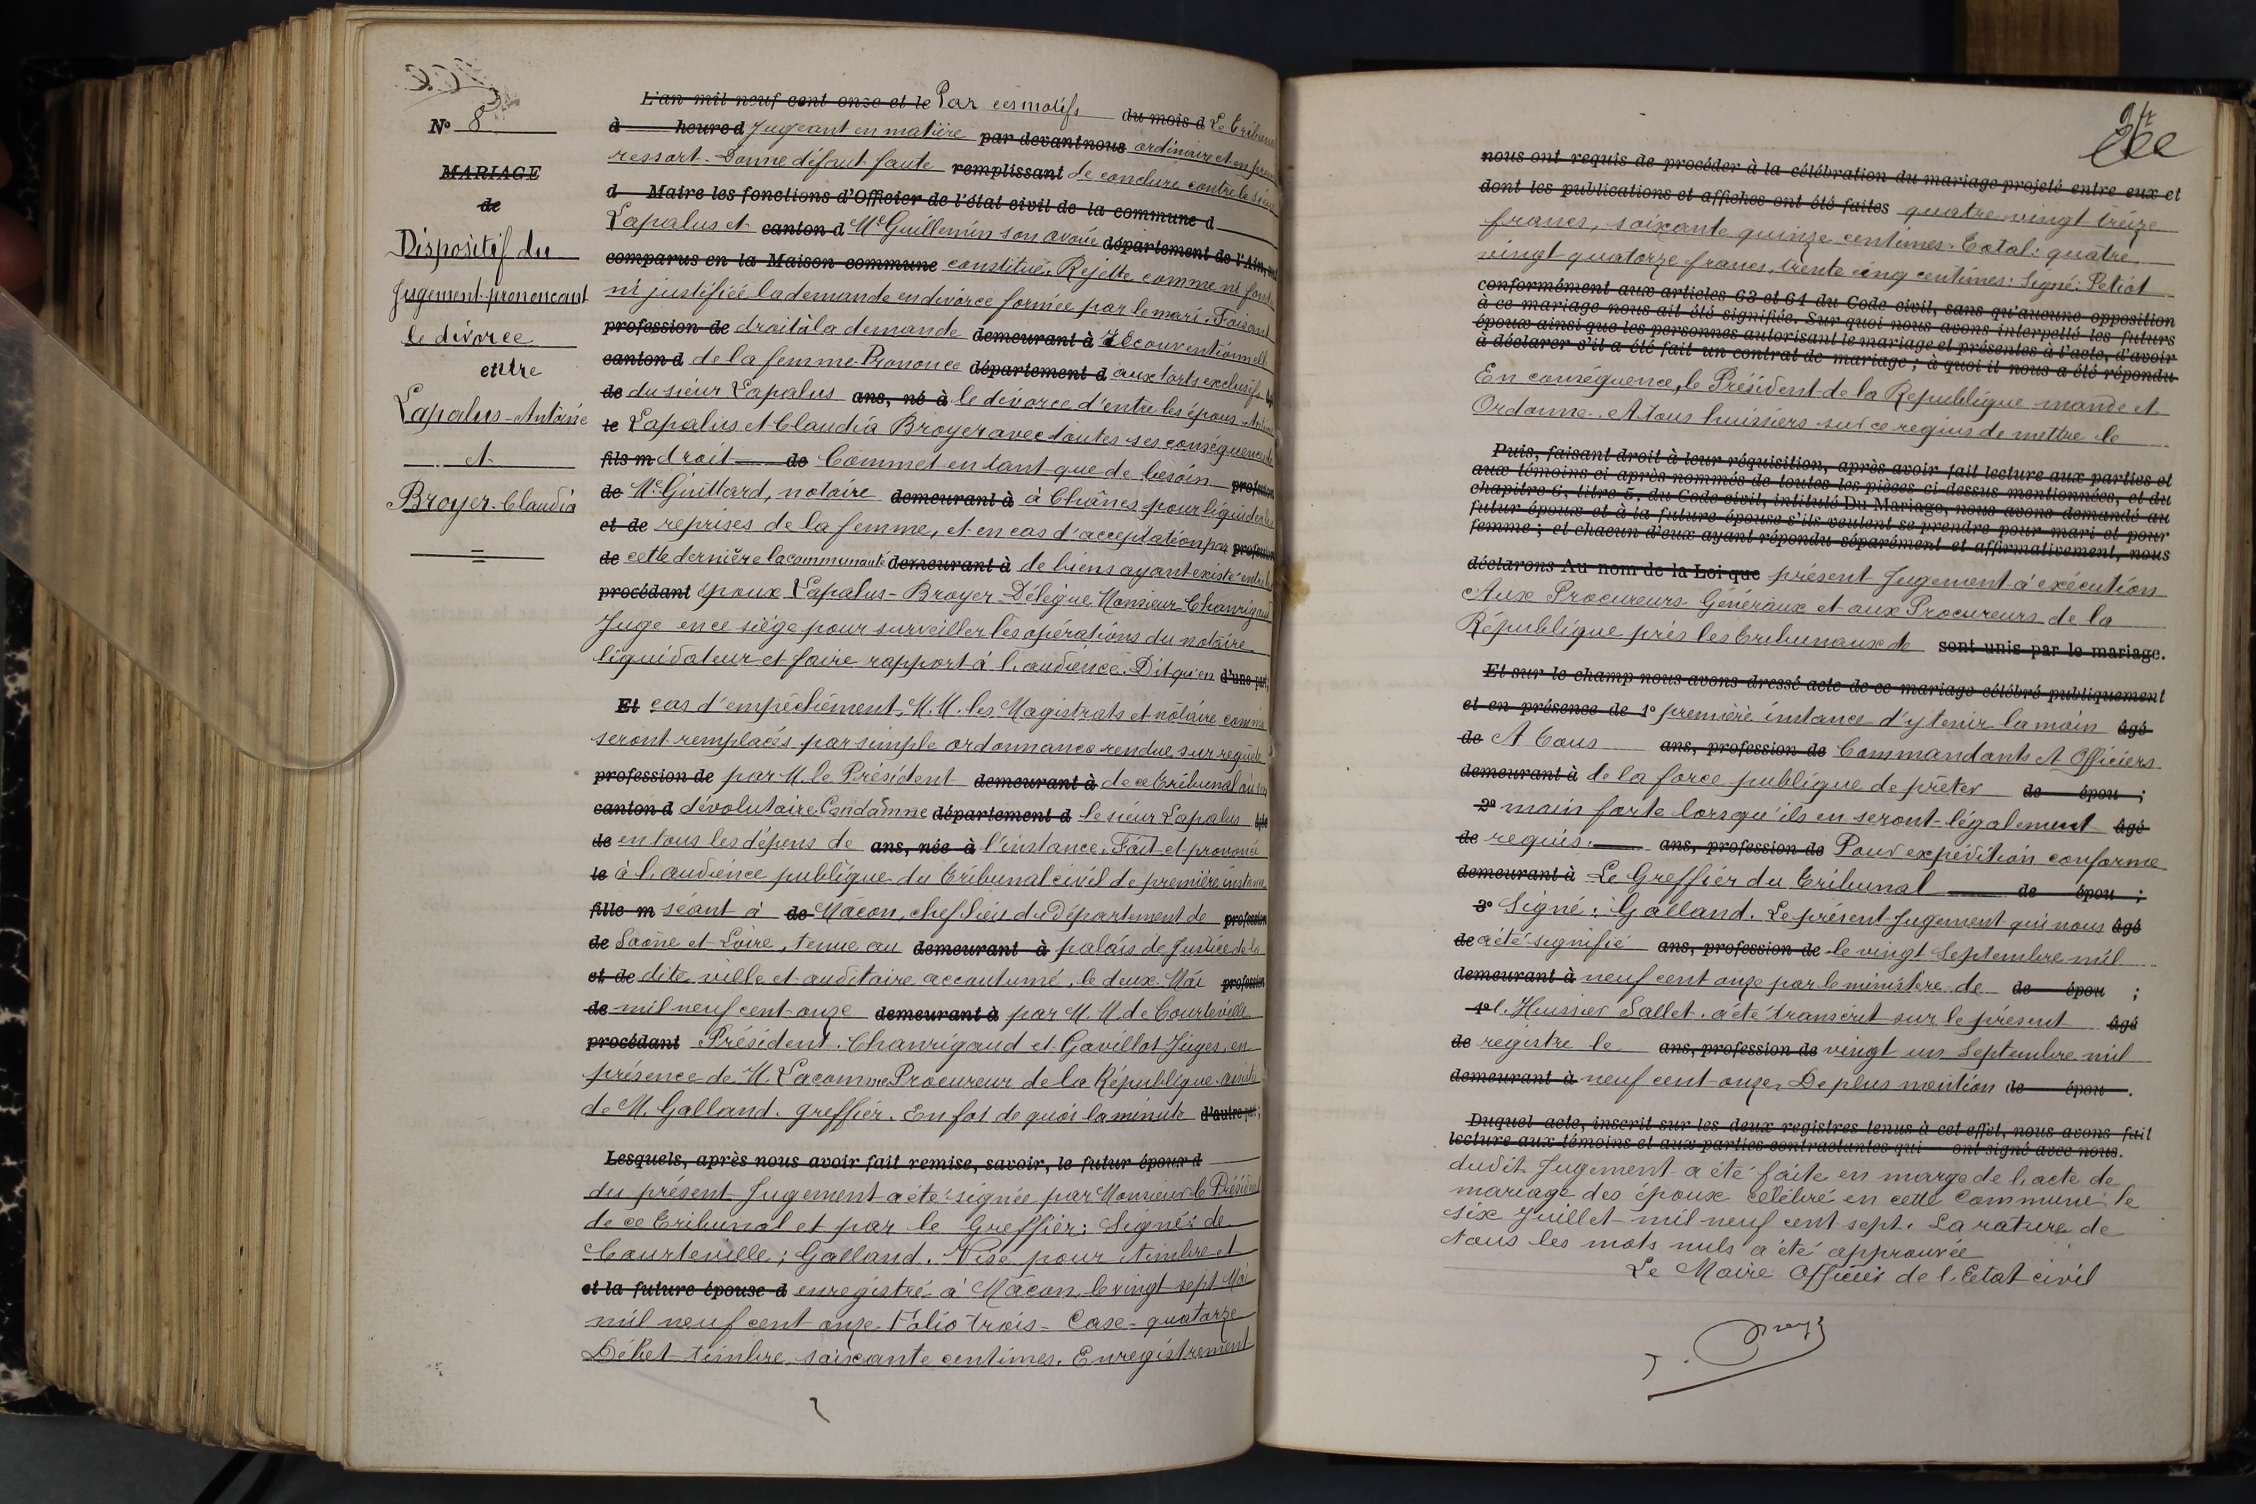 No 8
MARIAGE
de
Dispositif du
Jugement prononcant
le divorce
entre
Lapalus Antoine
et
Broyer Claudia
L'an mil neuf cent onze et le Par ces motifs du mois d Le Tribunal
à heure d Jugeant en matière par devant nous ordinaire et en premier
ressort. Donne défaut faute remplissant de conclure contre le sieur
d Maire les fonctions d'Officier de l'état civil de la commune d
Lapalus et canton d Me Guillemin son avoué département de l'Ain,
comparus en la Maison commune constitué. Rejette comme ni fondée
ni justifiée la demande en divorce formée par le mari. Faisant
profession de droit à la demande demeurant à reconventionnelle
canton d de la femme Prononce département d aux torts exclusifs
de du sieur Lapalus ans, né à le divorce d'entre les époux Antoine
le Lapalus et Claudia Broyer avec toutes ses conséquences de
fils m droit de Commet en tant que de besoin profession
de Me Guillard, notaire demeurant à à Chaînes pour liquider les
et de reprises de la femme, et en cas d'acceptation par profession
de cette dernière la communauté demeurant à de biens ayant existé entre les
procédant époux Lapalus - Broyer Délègue Monsieur Chanrigaud
Juge en ce siège pour surveiller les opérations du notaire
liquidateur et faire rapport à l'audience. Dit qu'en d'une part,
Et cas d'empêchement, M.M. les Magistrats et notaire commis
seront remplacés par simple ordonnance rendue sur requête
profession de par M. le Président demeurant à de ce Tribunal ou son
canton d dévolutaire Condamne département d le sieur Lapalus
de en tous les dépens de ans, née à l'instance. Fait et prononcé
le à l'audience publique du Tribunal civil de première instance
fille m séant à de Mâcon, chef lieu du Département de profession
de Saône et Loire, tenue au demeurant à palais de Justice de la
et de dite ville et auditoire accoutumé, le deux Mai profession
de mil neuf cent onze demeurant à par M.M. de Courteville
procédant Président. Chanrigaud et Gavillot Juges, en
présence de M. Lacomme Procureur de la République assisté
de M. Galland. greffier. En foi de quoi la minute d'autre part;
Lesquels, après nous avoir fait remise, savoir, le futur époux d
du présent Jugement a été signée par Monsieur le Président
de ce Tribunal et par le Greffier: Signé: de
Courteville; Galland. Visé pour timbre et
et la future épouse d enregistré à Mâcon le vingt sept Mai
mil neuf cent onze. Folio trois - Case - quatorze
Débet timbre soixante centimes. Enregistrement
nous ont requis de procéder à la célébration du mariage projeté entre eux et
dont les publications et affiches ont été faites quatre vingt treize
francs, soixante quinze centimes. Total: quatre
vingt quatorze francs, trente cinq centimes: Signé: Petiot
conformément aux articles 63 et 64 du Code civil, sans qu'aucune opposition
à ce mariage nous ait été signifiée. Sur quoi nous avons interpellé les futurs
époux ainsi que les personnes autorisant le mariage et présentes à l'acte, d'avoir
à déclarer s'il a été fait un contrat de mariage; à quoi il nous a été répondu
En conséquence, le Président de la République mande et
Ordonne. A tous huissiers sur ce requis de mettre le
Puis, faisant droit à leur réquisition, après avoir fait lecture aux parties et
aux témoins ci-après nommés de toutes les pièces ci-dessus mentionnées, et du
chapitre 6, titre 5, du Code civil, intitulé Du Mariage, nous avons demandé au
futur époux et à la future épouse s'ils veulent se prendre pour mari et pour
femme; et chacun d'eux ayant répondu séparément et affirmativement, nous
déclarons Au nom de la Loi que présent Jugement à exécution
Aux Procureurs Généraux et aux Procureurs de la
République près les Tribunaux de sont unis par le mariage.
Et sur le champ nous avons dressé acte de ce mariage célébré publiquement
et en présence de 1° première instance d'y tenir la main âgé
de A Tous ans, profession de Commandants et Officiers
demeurant à de la force publique de prêter de épou ;
2° main forte lorsqu'ils en seront légalement âgé
de requis. ans, profession de Pour expédition conforme
demeurant à Le Greffier du Tribunal de épou ;
3° Signé: Galland. Le présent Jugement qui nous âgé
de a été signifié ans, profession de le vingt Septembre mil
demeurant à neuf cent onze par le ministère de de épou ;
4° l'Huissier Sallet. a été transcrit sur le présent âgé
de registre le ans, profession de vingt un Septembre mil
demeurant à neuf cent onze. De plus mention de épou .
Duquel acte, inscrit sur les deux registres tenus à cet effet, nous avons fait
lecture aux témoins et aux parties contractantes qui ont signé avec nous.
dudit Jugement a été faite en marge de l'acte de
mariage des époux célébré en cette Commune le
six Juillet mil neuf cent sept. La rature de
tous les mots nuls a été approuvée
Le Maire Officier de l'Etat civil